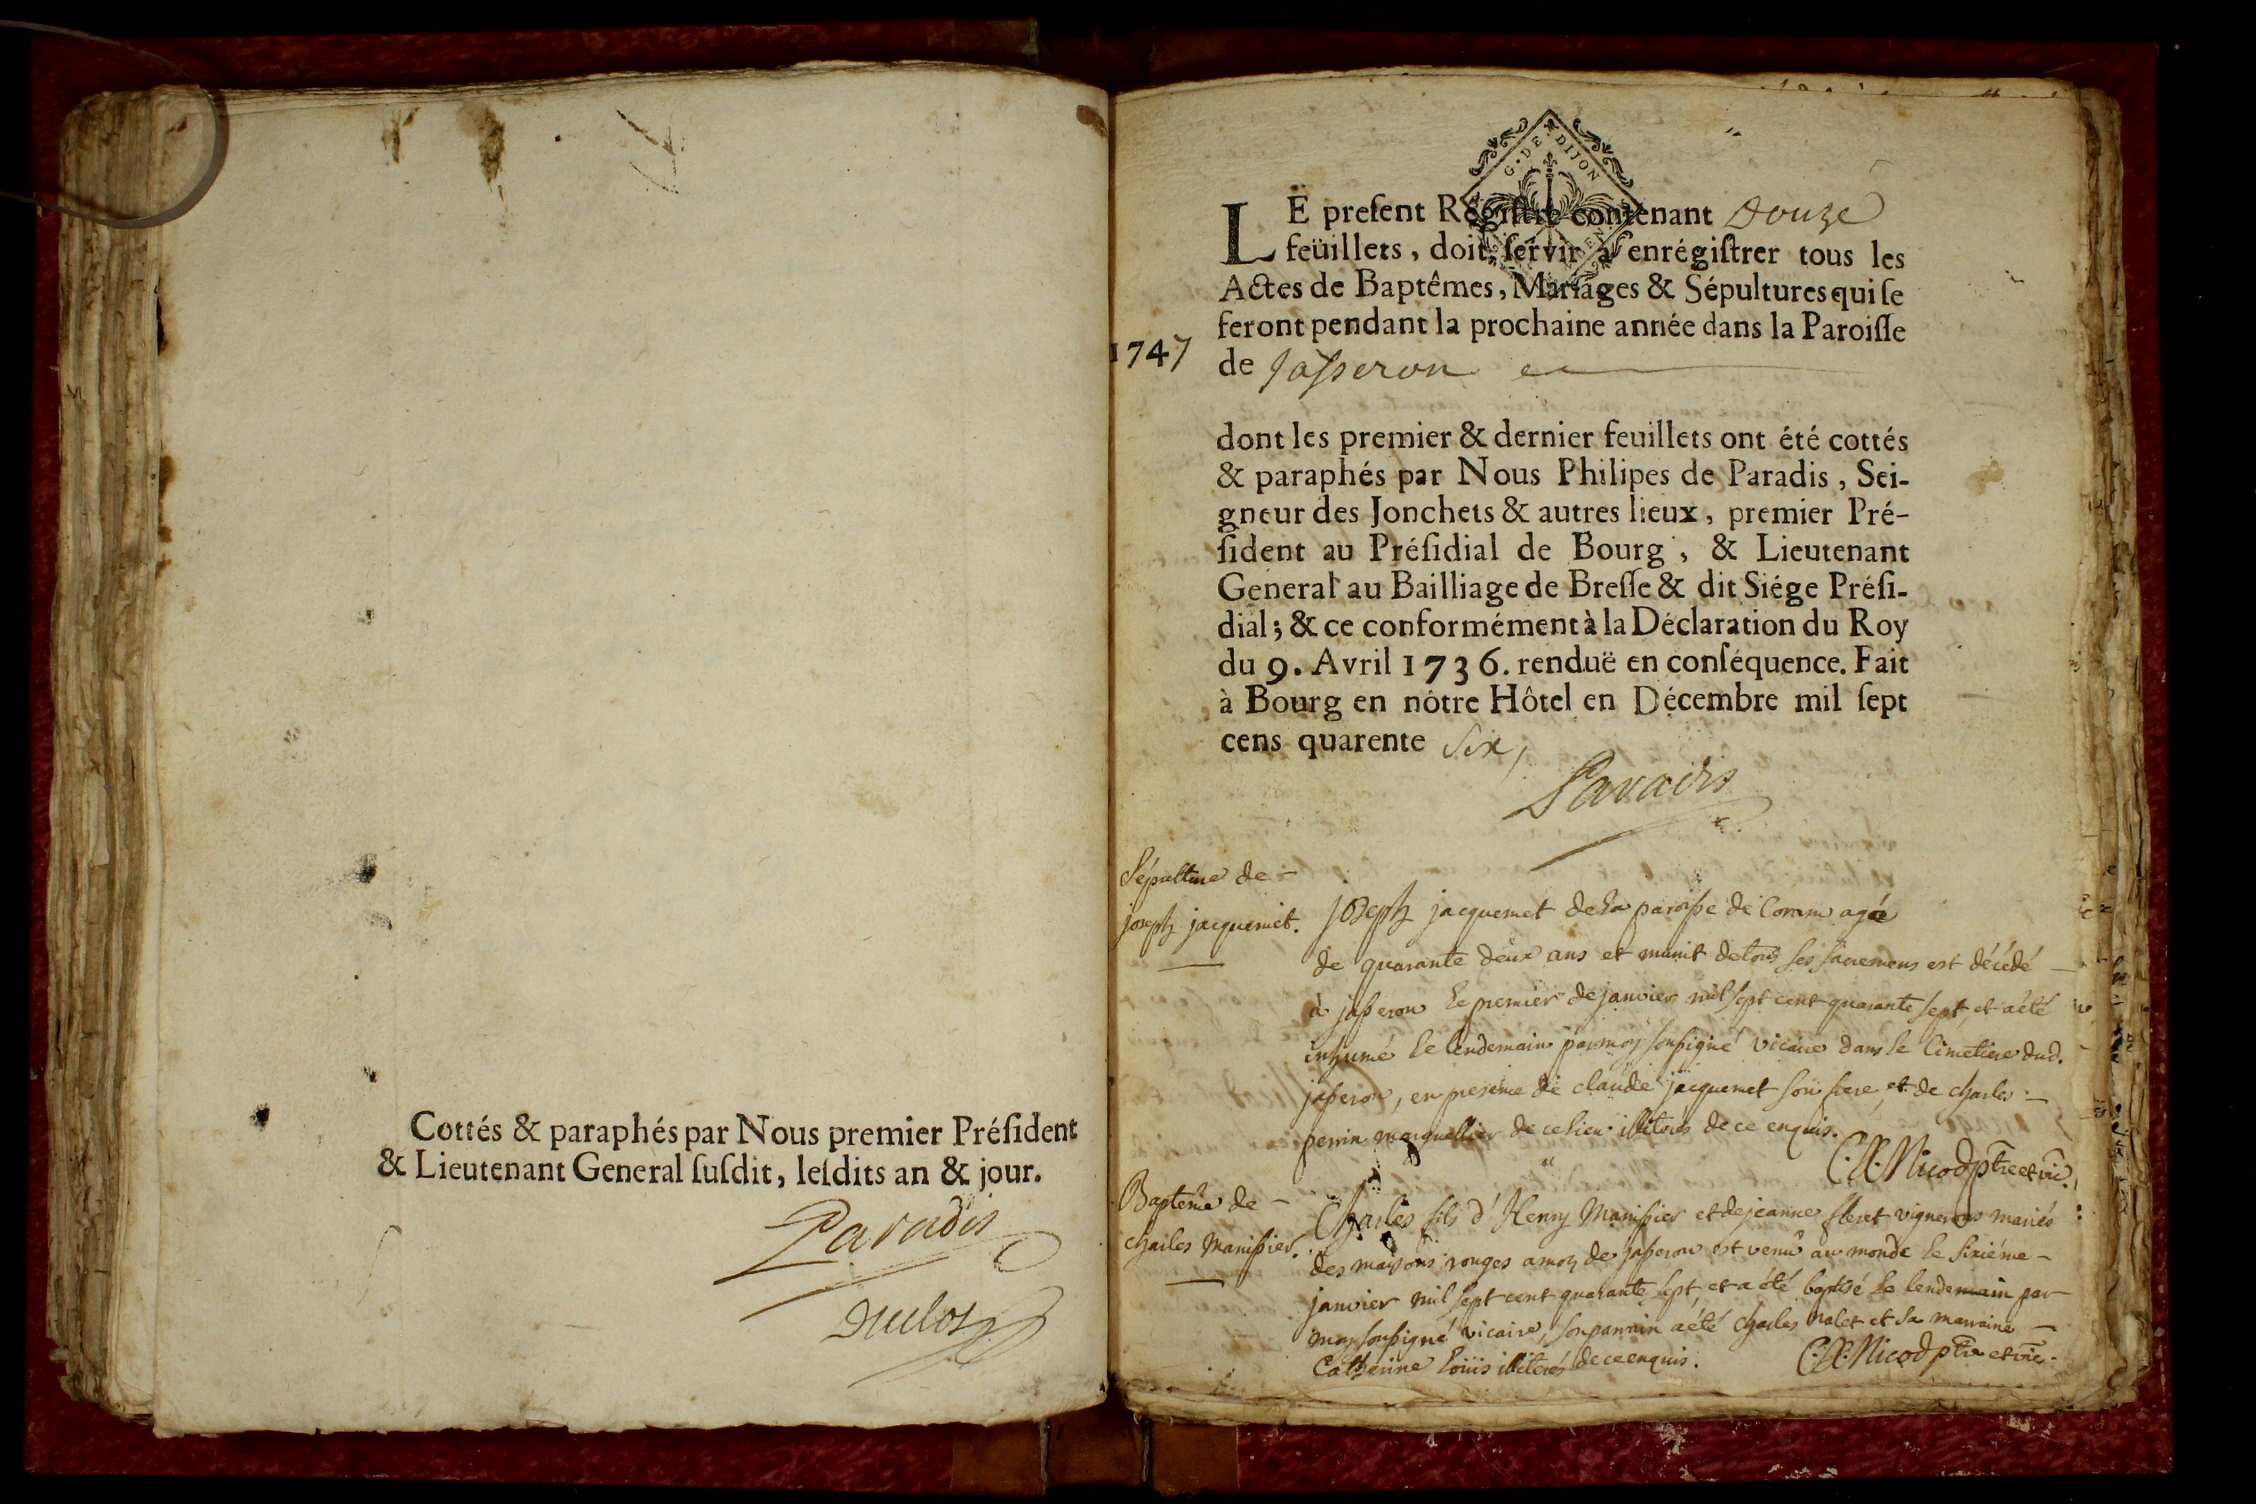 Cottés & paraphés par Nous premier Préſident
& Lieutenant General ſuſdit, leſdits an & jour.
Paradis
Duclos
G. DE DIJON
LE preſent Régiſtre contenant Douze
feüillets, doit ſervir à enrégiſtrer tous les
Actes de Baptêmes, Mariages & Sépultures qui ſe
feront pendant la prochaine année dans la Paroiſſe
1747
de Jaſseron
dont les premier & dernier feuillets ont été cottés
& paraphés par Nous Philipes de Paradis, Sei-
gneur des Jonchets & autres lieux, premier Pré-
ſident au Préſidial de Bourg, & Lieutenant
General au Bailliage de Breſſe & dit Siége Préſi-
dial; & ce conformément à la Déclaration du Roy
du 9. Avril 1736. renduë en conſéquence. Fait
à Bourg en nôtre Hôtel en Décembre mil ſept
cens quarente Six,
Paradis
Sépulture de -
joseph jacquemet.
Joseph jacquemet de la paroiſse de agée
de quarante deux ans et munit de tous ses sacremens est décédé
à jaſseron le premier de janvier mil sept cent quarante sept, et a été
inhumé le lendemain par moy souſsigné vicaire dans le cimetiere dud.
jaſseron, en presence de claude jacquemet son frere, et de charles
perrin marguellier de ce lieu illiterés de ce enquis.
C:X:Nicod ptre et vic.
Bapteme de -
charles Maniſsier.
Charles fils d'Henry Maniſsier et de jeanne vignerons mariés
des maisons rouges de jaſseron est venu au monde le sixiéme -
janvier mil sept cent quarante sept, et a été baptisé le lendemain par
moy souſsigné vicaire, son parrain a été charles et sa marraine
Catherine Loüis illiterés de ce enquis.
C:X:Nicod ptre et vic.